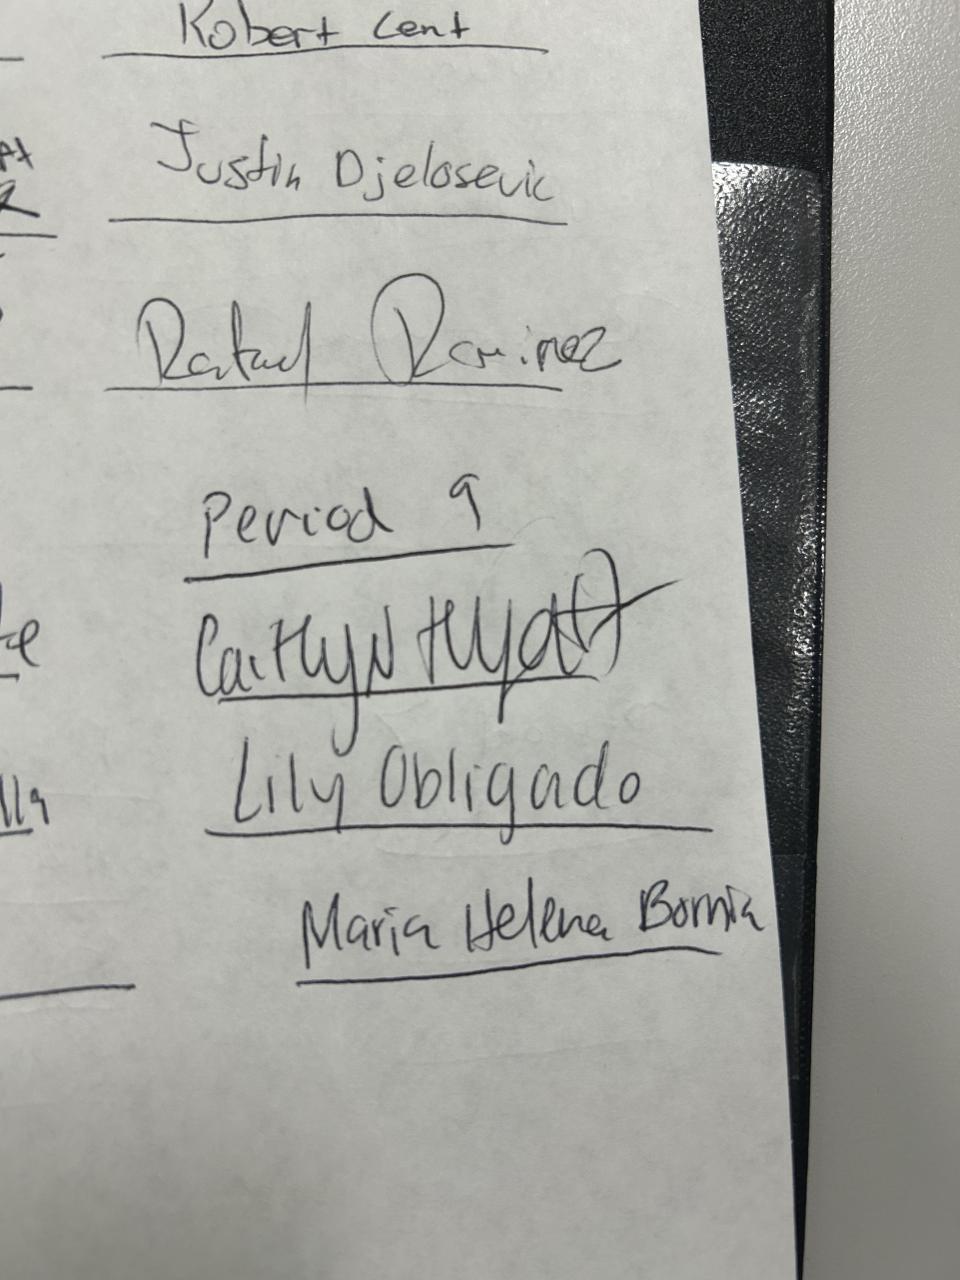 Robert Cent
Justin Djelosevic
Rafael Ramirez
Period 9
Caitlyn Hyatt
Lily Obligado
Maria Helena Bornia